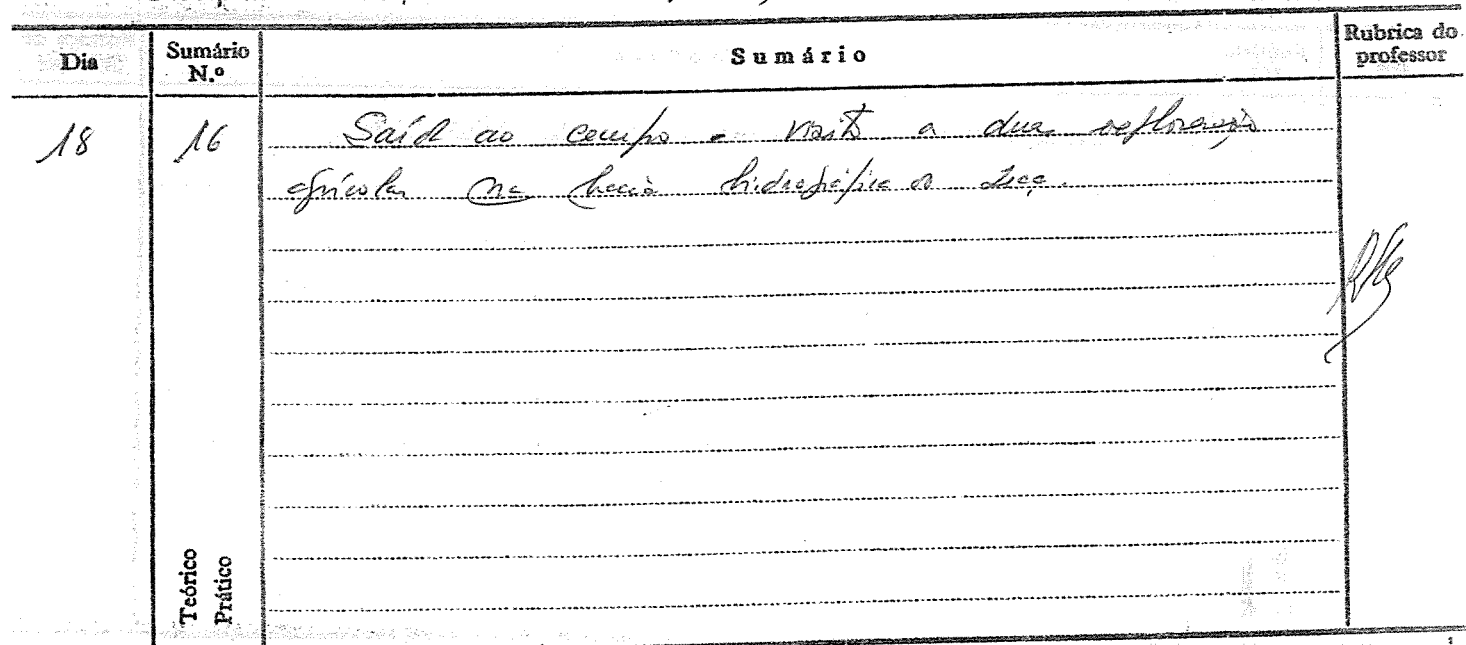 Dia
Sumário N.º
Sumário
Rubrica do professor
18
16
Saída ao campo - visita a duas explorações
agrícolas na bacia hidrográfica do
Teórico
Prático